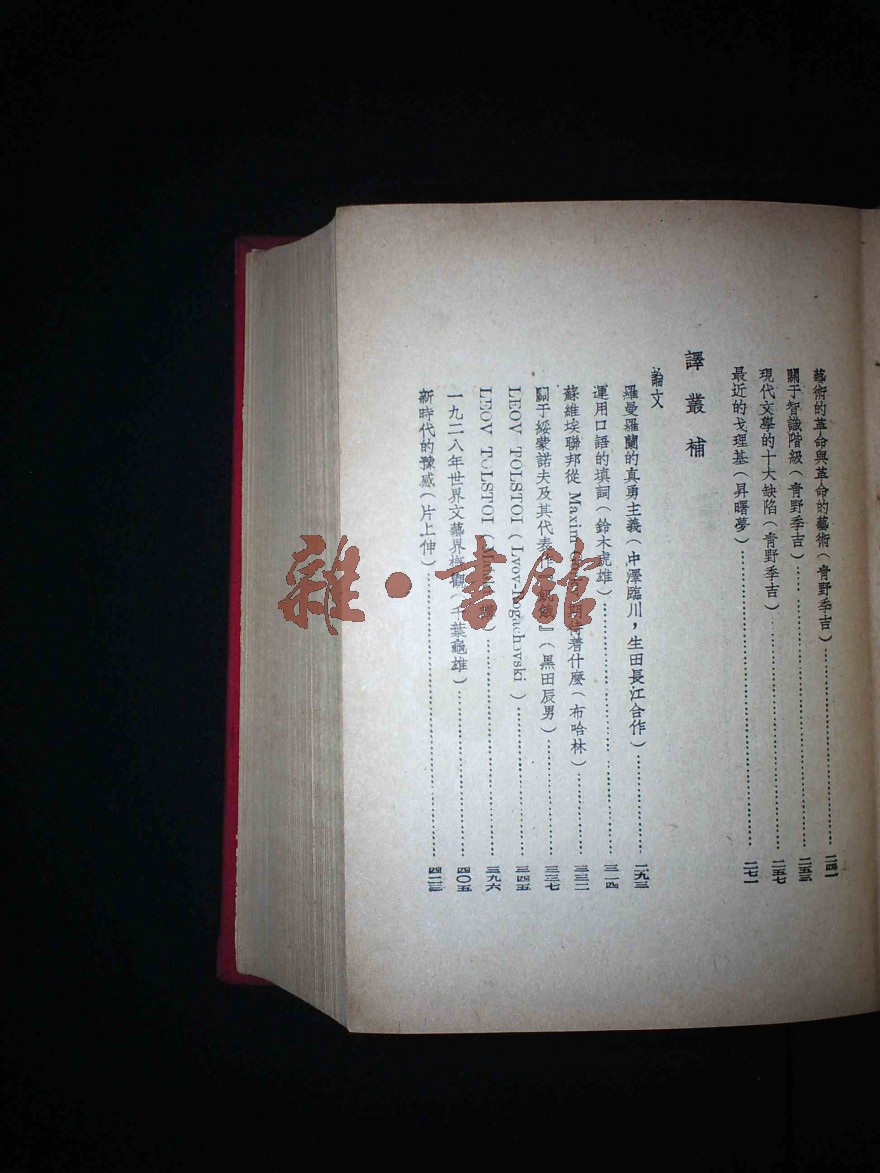 藝術的革命與革命的藝術(青野季吉)……二四一
關于智識階級(青野季吉)……二五三
現代文學的十大缺陷(青野季吉)……二五七
最近的戈理基(昇曙夢)……二七一
譯叢補
論文
羅曼羅蘭的真勇主義(中澤臨川,生田長江合作)……二九三
運用口語的填詞(鈴木虎雄)……三一四
蘇維埃聯邦從 Maxim 期待著什麼(布哈林)……三三二
關于綏蒙諾夫及其代表作』(黑田辰男)……三三七
LEOV TOLSTOI (Lvov-Rogachevski)……三四五
LEOV TOLSTOI ……三九六
一九二八年世界文藝界概觀(千葉龜雄)……四〇五
新時代的豫感(片上伸)……四二三
雜·書館